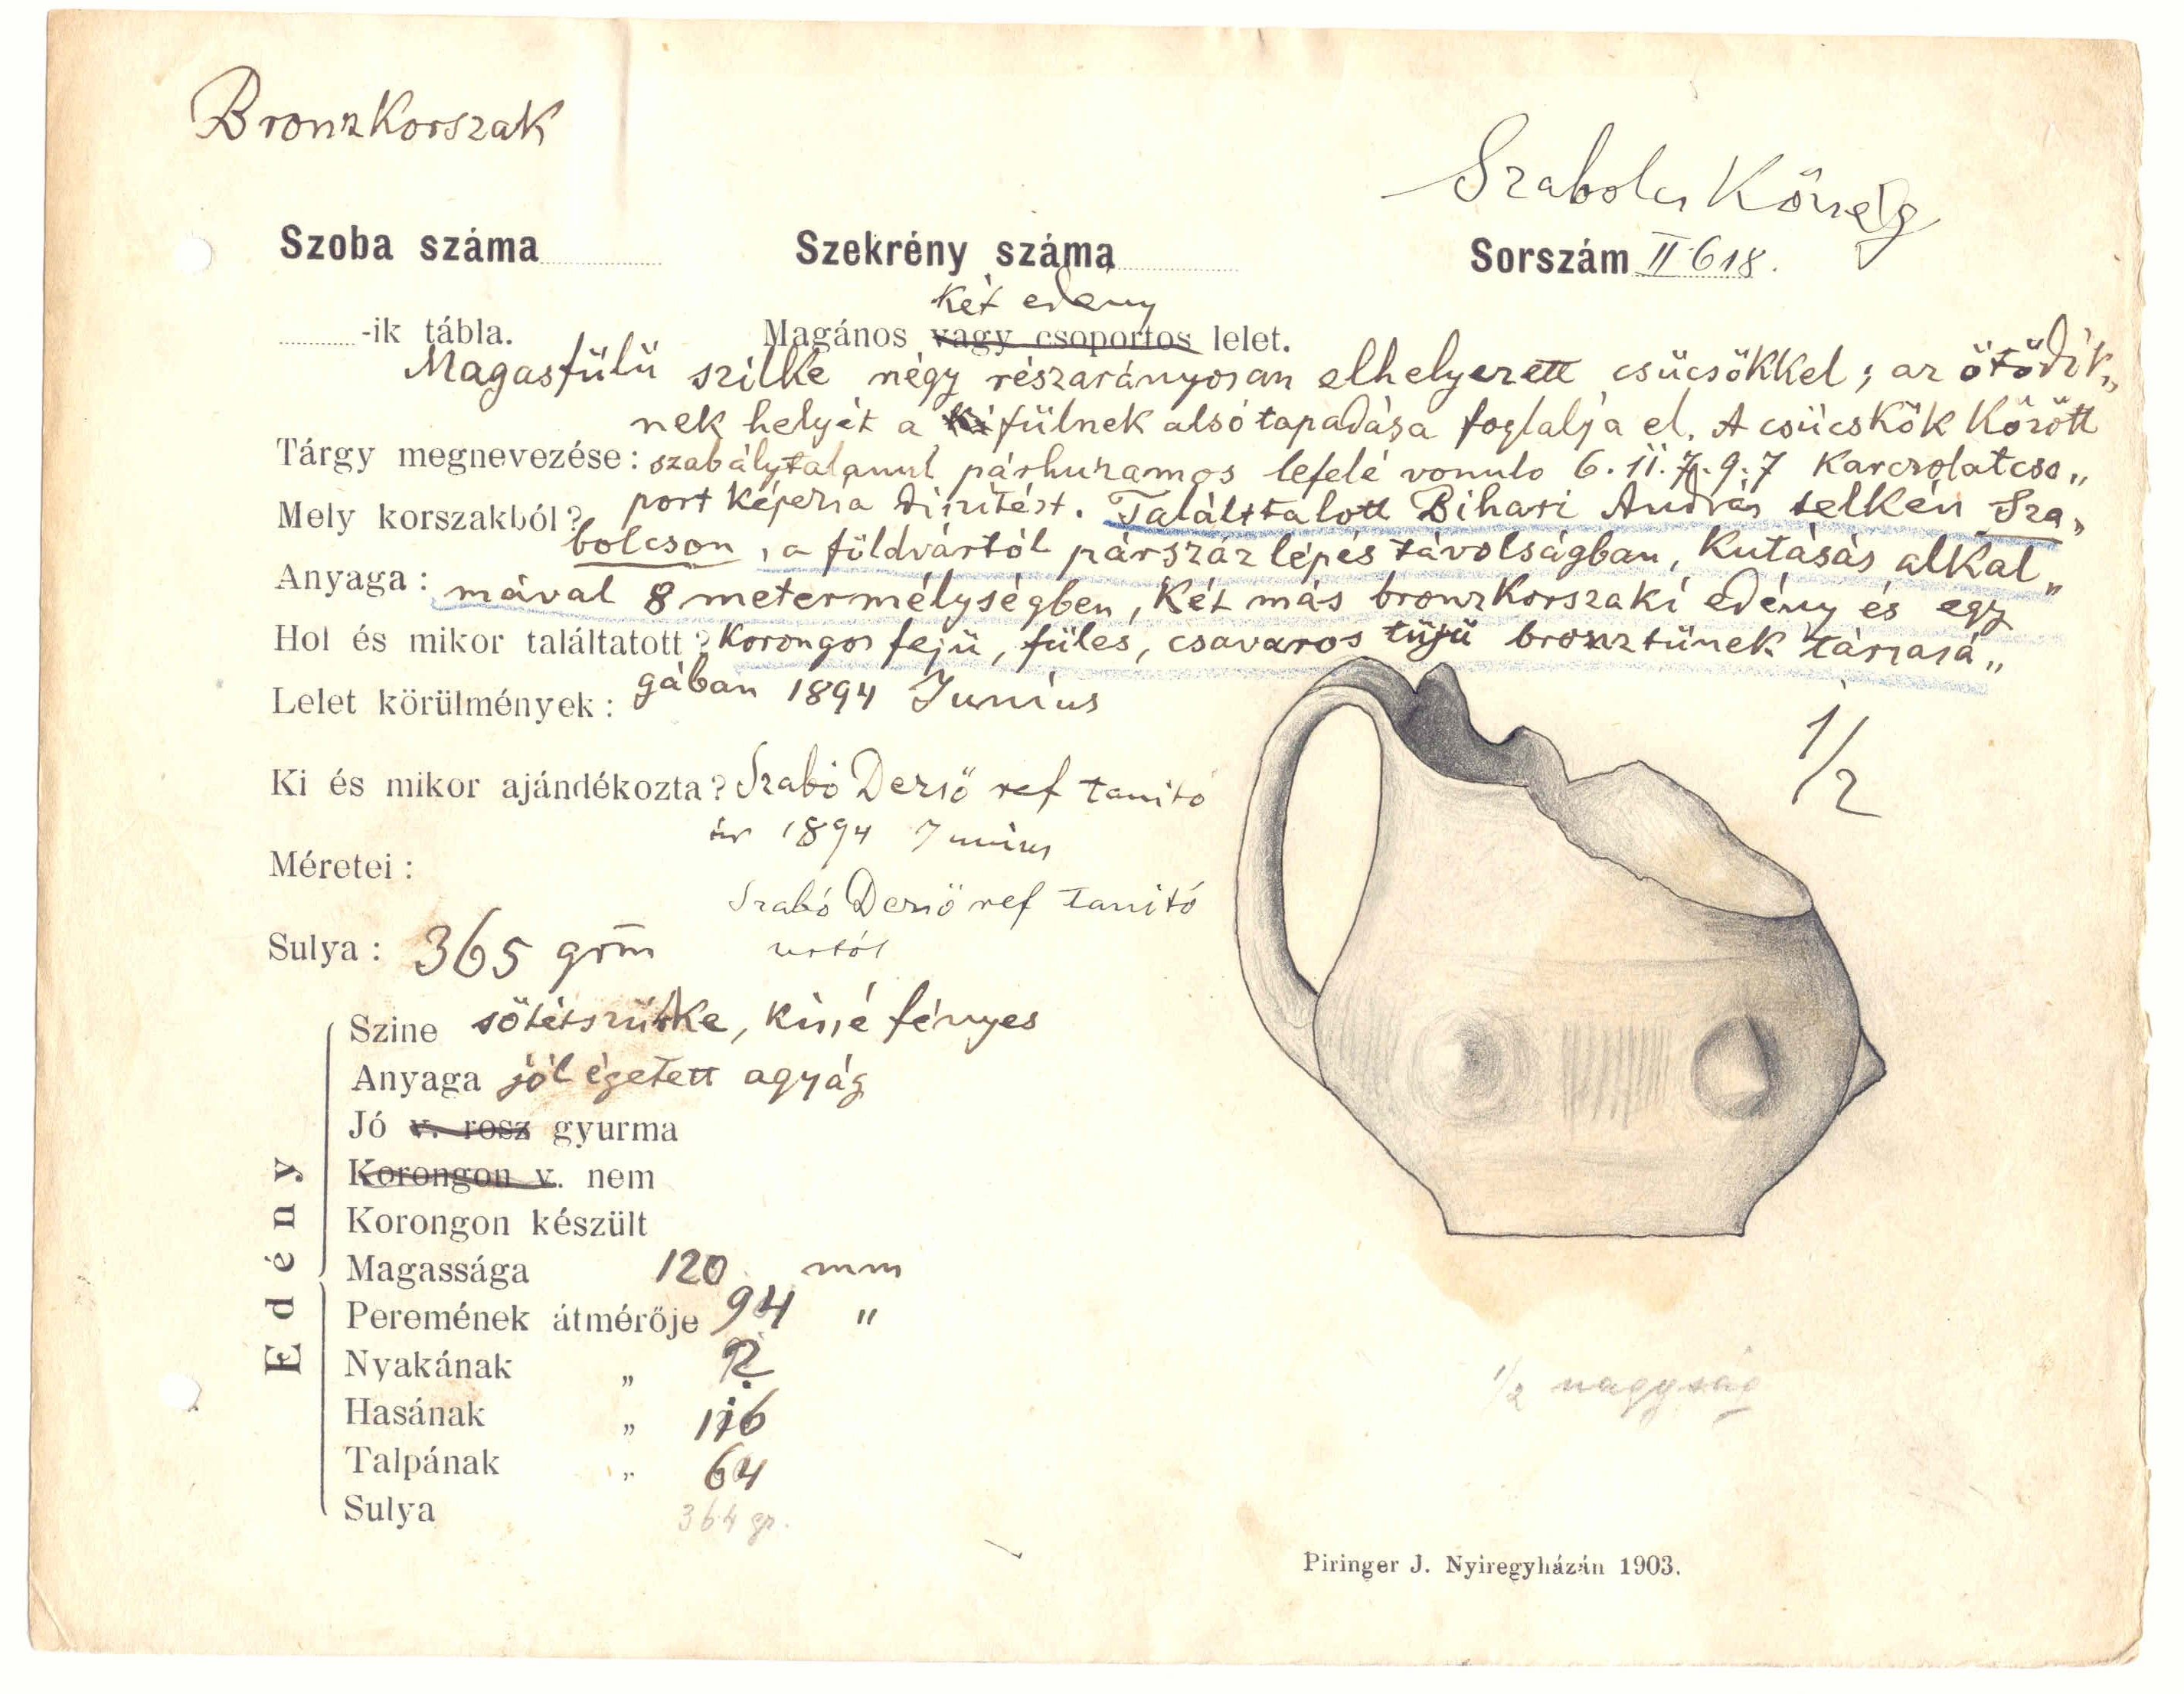 Bronzkorszak
Szabolcs Község
Szoba száma
Szekrény száma
Sorszám II 618.
két edény
-ik tábla.
Magános vagy csoportos lelet.
Magasfülü szilke négy részarányosan elhelyezett csücsökkel; az ötödik„
nek helyét a fülnek alsó tapadása foglalja el. A csücskök között
Tárgy megnevezése: szabálytalanul párhuzamos lefelé vonuló 6. 11. 7. 9. 7 karczolatcso„
Mely korszakból? port képezia diszitést. Találtatott Bihari András telkén Sza„
bolcson, a földvártól párszáz lépés távolságban, kutásás alkal„
Anyaga: mával 8 metermélységben, két más bronzkorszaki edény és egy
Hol és mikor találtatott? korongos fejü, füles, csavaros tüjü bronztünek társasá„
Lelet körülmények: gában 1894 Junius
1/2
Ki és mikor ajándékozta? Szabó Dezső ref tanitó
úr 1894 Junius
Méretei:
Szabó Dezső ref tanitó
urtól
Sulya: 365 grm
Edény
Szine sötétszürke, kissé fényes
Anyaga jól égetett agyag
Jó v. rosz gyurma
Korongon v. nem
Korongon készült
Magassága 120 mm
Peremének átmérője 94 "
Nyakának „ ?
Hasának „ 116
Talpának „ 64
Sulya 364 gr.
1/2 nagyság
Piringer J. Nyiregyházán 1903.